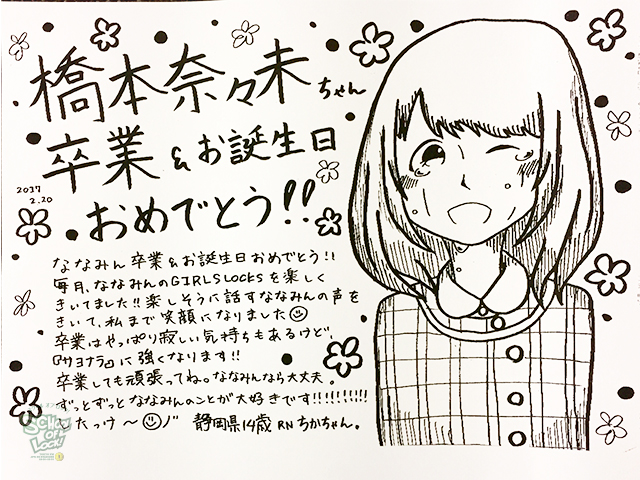 橋本奈々未ちゃん
卒業&お誕生日
2037
2.20
おめでとう!!
ななみん卒業&お誕生日おめでとう!!
毎月、ななみんのGIRLS LOCKSを楽しく
きいてました!!楽しそうに話すななみんの声を
きいて、私まで笑顔になりました
卒業はやっぱり寂しい気持ちもあるけど、
『サヨナラ』に強くなります!!
卒業しても頑張ってね。ななみんなら大丈夫。
ずっとずっとななみんのことが大好きです!!!!!!!!!!
したっけ〜
静岡県14歳 RN ちかちゃん。
SCHOOL
OF
LOCK!